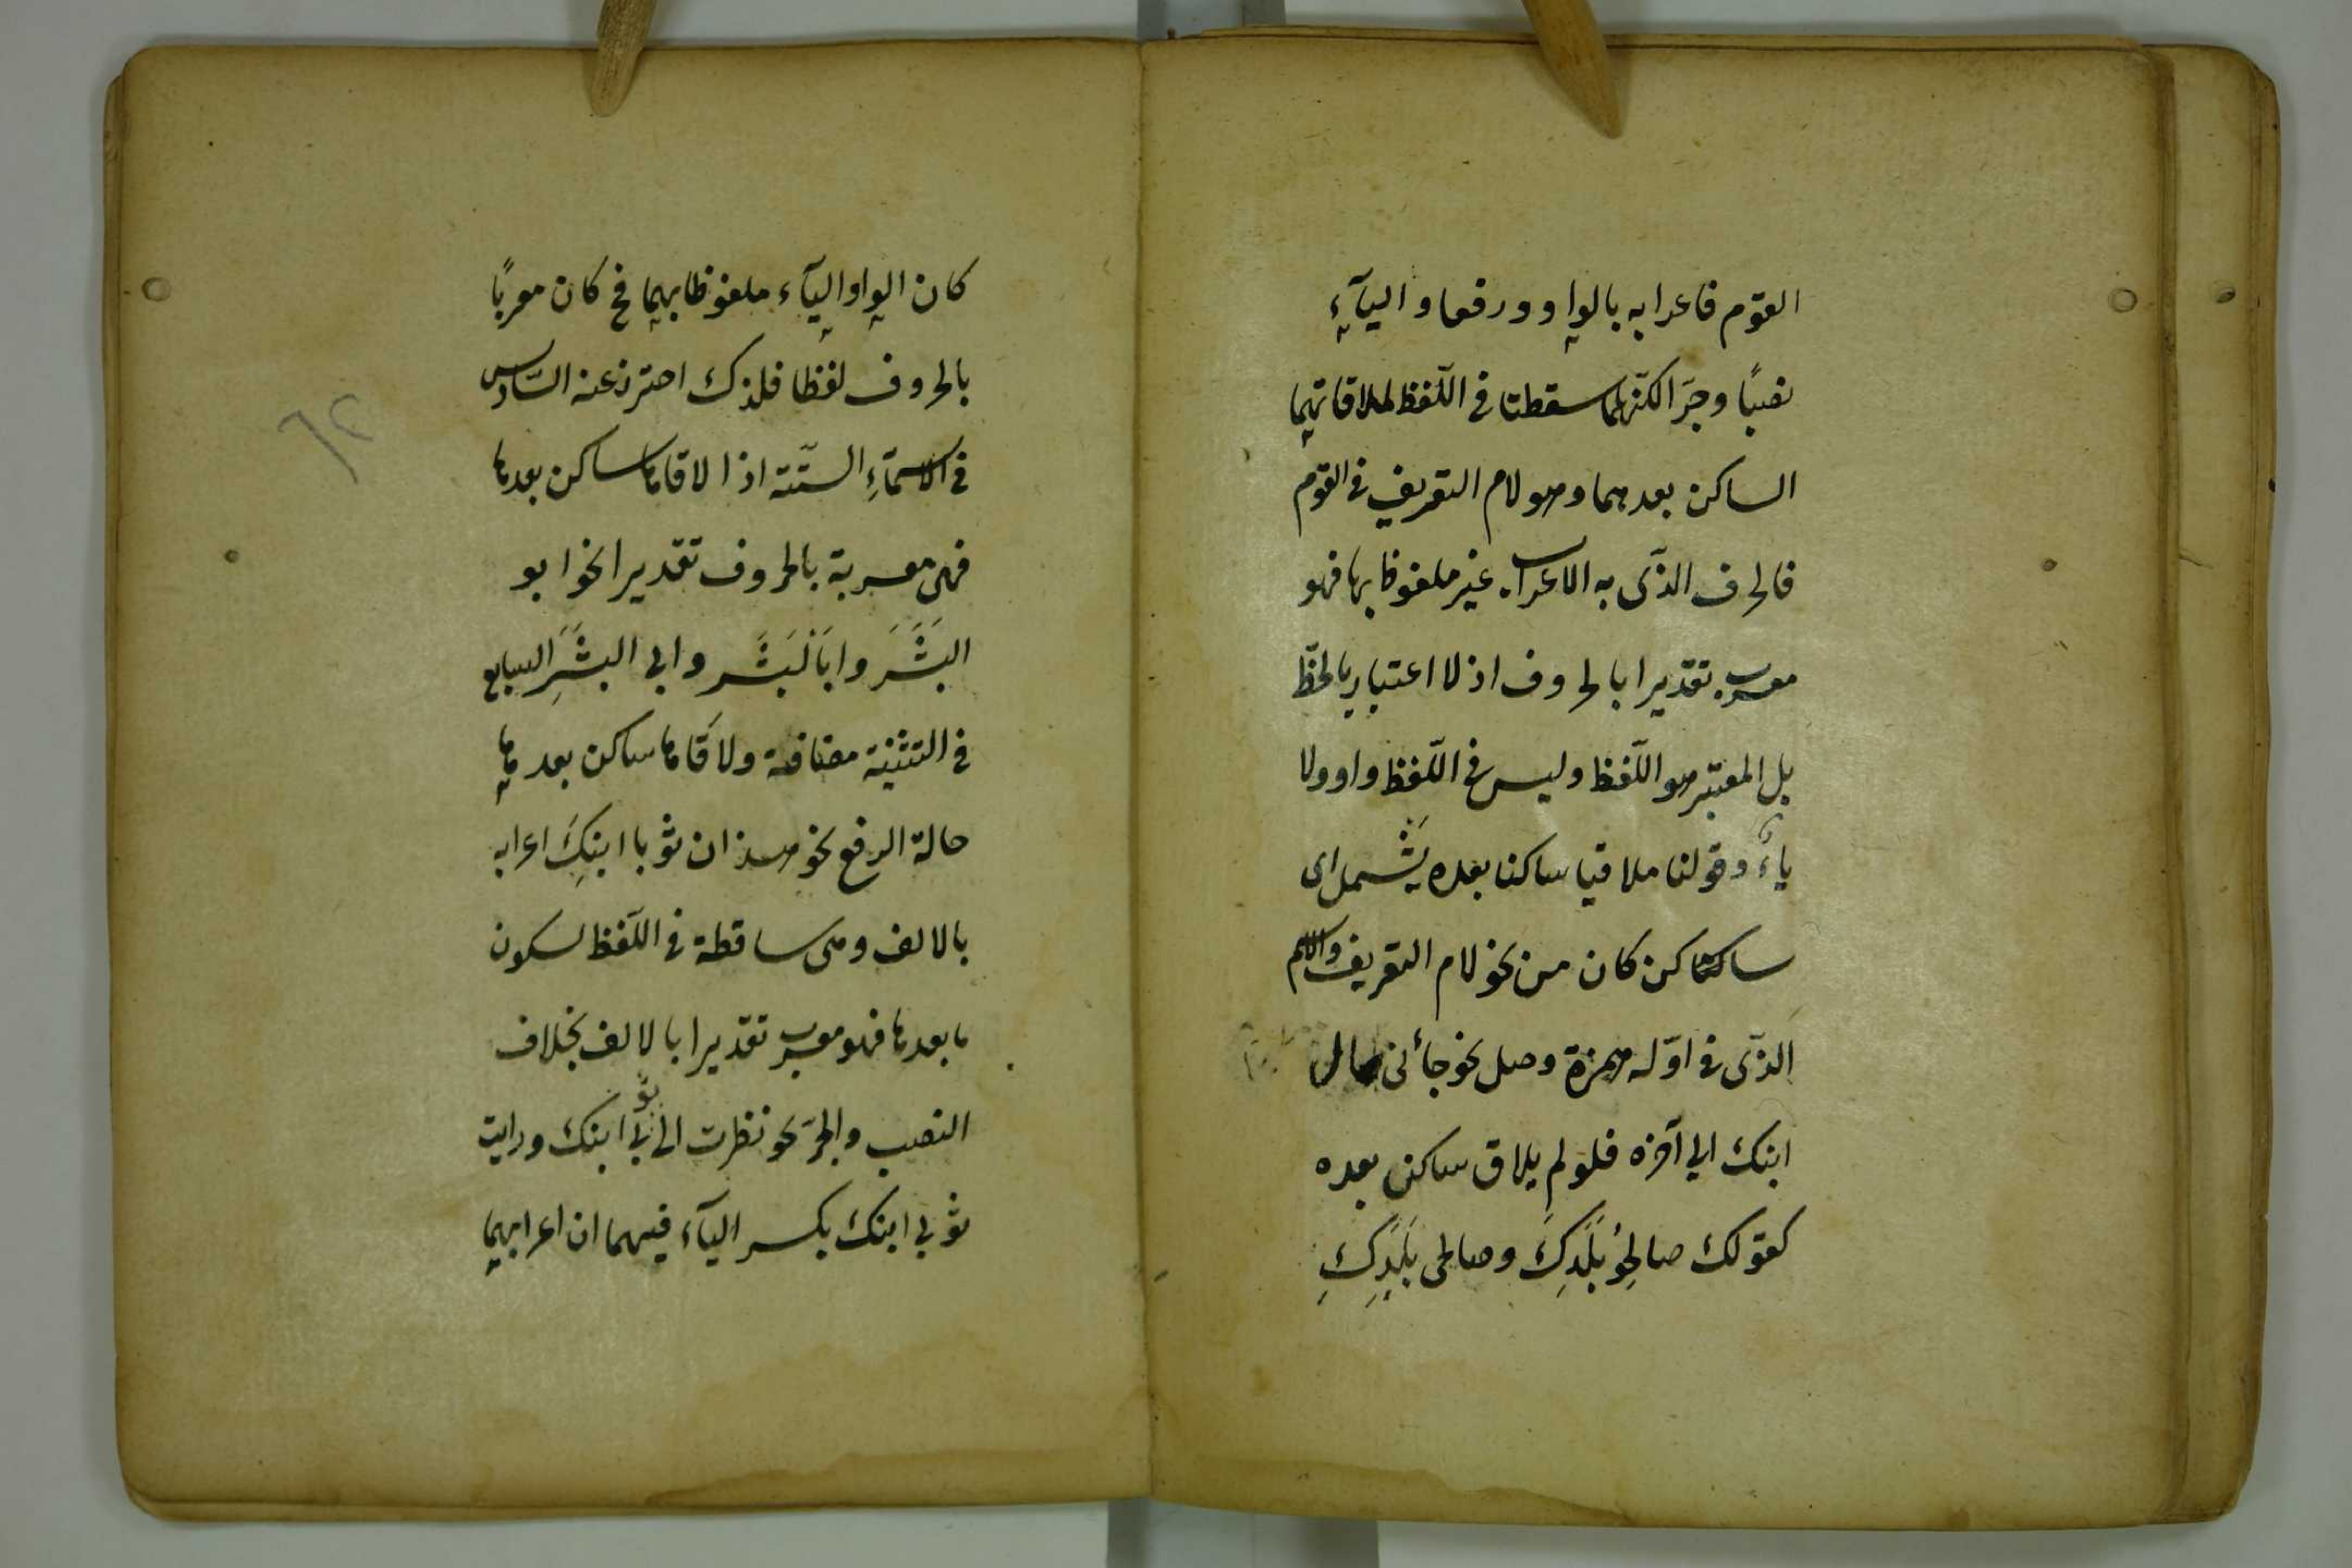 القوم فاعرابه بالواو ورفعا واليآء
نصبًا وجرّا لكنّهما سقطتا في اللّفظ لملاقاتهما
الساكن بعدهما وهو لام التعريف في القوم
فالحرف الذّى به الاعراب غير ملفوظ بها فهو
معرب تقديرا بالحروف اذ لا اعتبار بالخطّ
بل المعتبر هو اللّفظ وليس في اللّفظ واو ولا
ياءً وقولنا ملاقيا ساكنا بعده يشمل اى
ساكن كان من نحو لام التعريف والاسم
الذّى في اوّله همزة وصل نحو جائنى
ابنك الي آخره فلو لم يلاق ساكن بعده
كقولك صالحُو بَلَدِكَ وصالحى بَلَدِكِ
كان الواو واليآء ملفوظا بهما فح كان معربًا
بالحروف لفظا فلذلك احترز عنه السّادس
في الاسمآءِ السّتّة اذا لاقاها ساكن بعدها
فهى معربة بالحروف تقديرا نحو ابو
البَشَرَ وابَا لبَشَر وابي البشَرِ السابع
في التثنية مضافة ولاقَاها ساكن بعدها
حالة الرفع نحو هذان ثوبا ابنِكَ اعرابه
بالالف وهى ساقطة في اللّفظ لسكون
ما بعدها فهو معرب تقديرا بالالف بخلاف
النصب والجرّ نحو نظرت الى ثوبي ابنك ورايت
ثوبي ابنك بكسر اليآء فيهما ان اعرابهما
٦٢